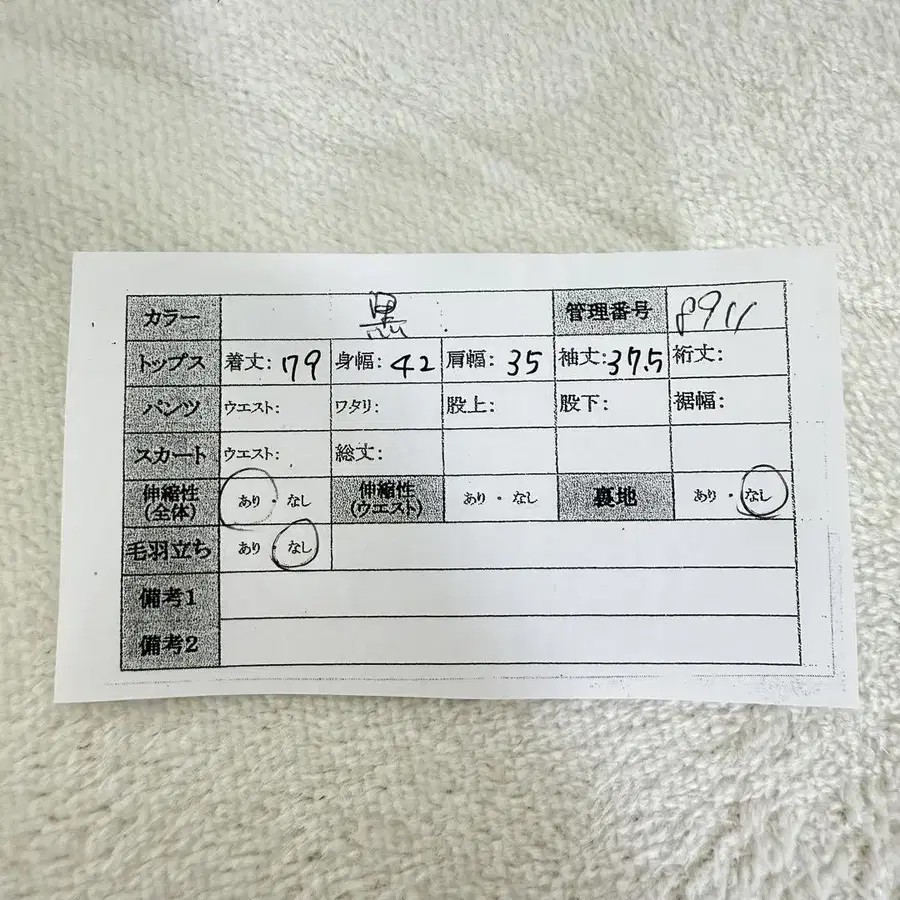 カラー 黒 管理番号 8911
トップス 着丈: 79 身幅: 42 肩幅: 35 袖丈: 37.5 裄丈:
パンツ ウエスト: ワタリ: 股上: 股下: 裾幅:
スカート ウエスト: 総丈:
伸縮性(全体) あり・なし 伸縮性(ウエスト) あり・なし 裏地 あり・なし
毛羽立ち あり・なし
備考1
備考2